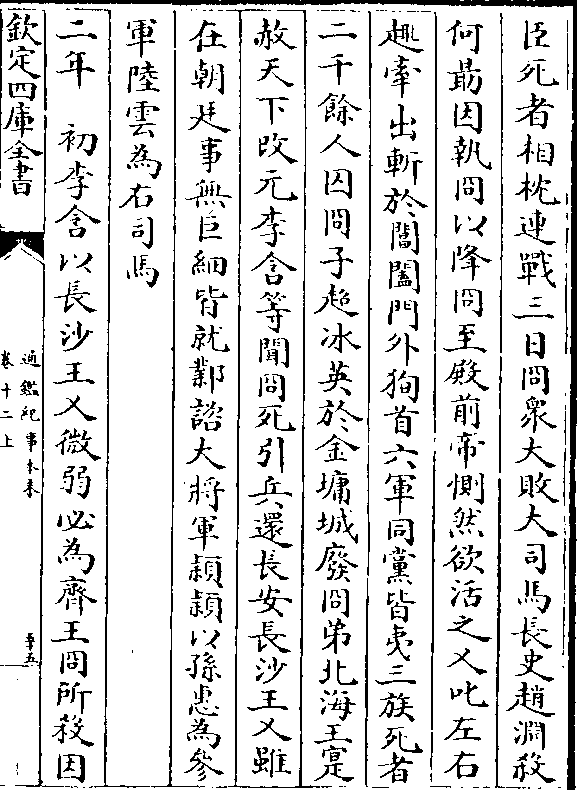 臣死者相枕連戰三日冏衆大敗大司馬長史趙淵殺
何勗因執冏以降冏至殿前帝惻然欲活之乂叱左右
趣牽出斬於閶闔門外狥首六軍同黨皆夷三族死者
二千餘人囚冏子超冰英於金墉城廢冏弟北海王寔
赦天下改元李含等聞冏死引兵還長安長沙王乂雖
在朝廷事無巨細皆就鄴諮大將軍穎穎以孫惠為參
軍陸雲為右司馬
二年 初李含以長沙王乂微弱必為齊王冏所殺因
欽定四庫全書
通鑑紀事本末
卷十二上
辛五